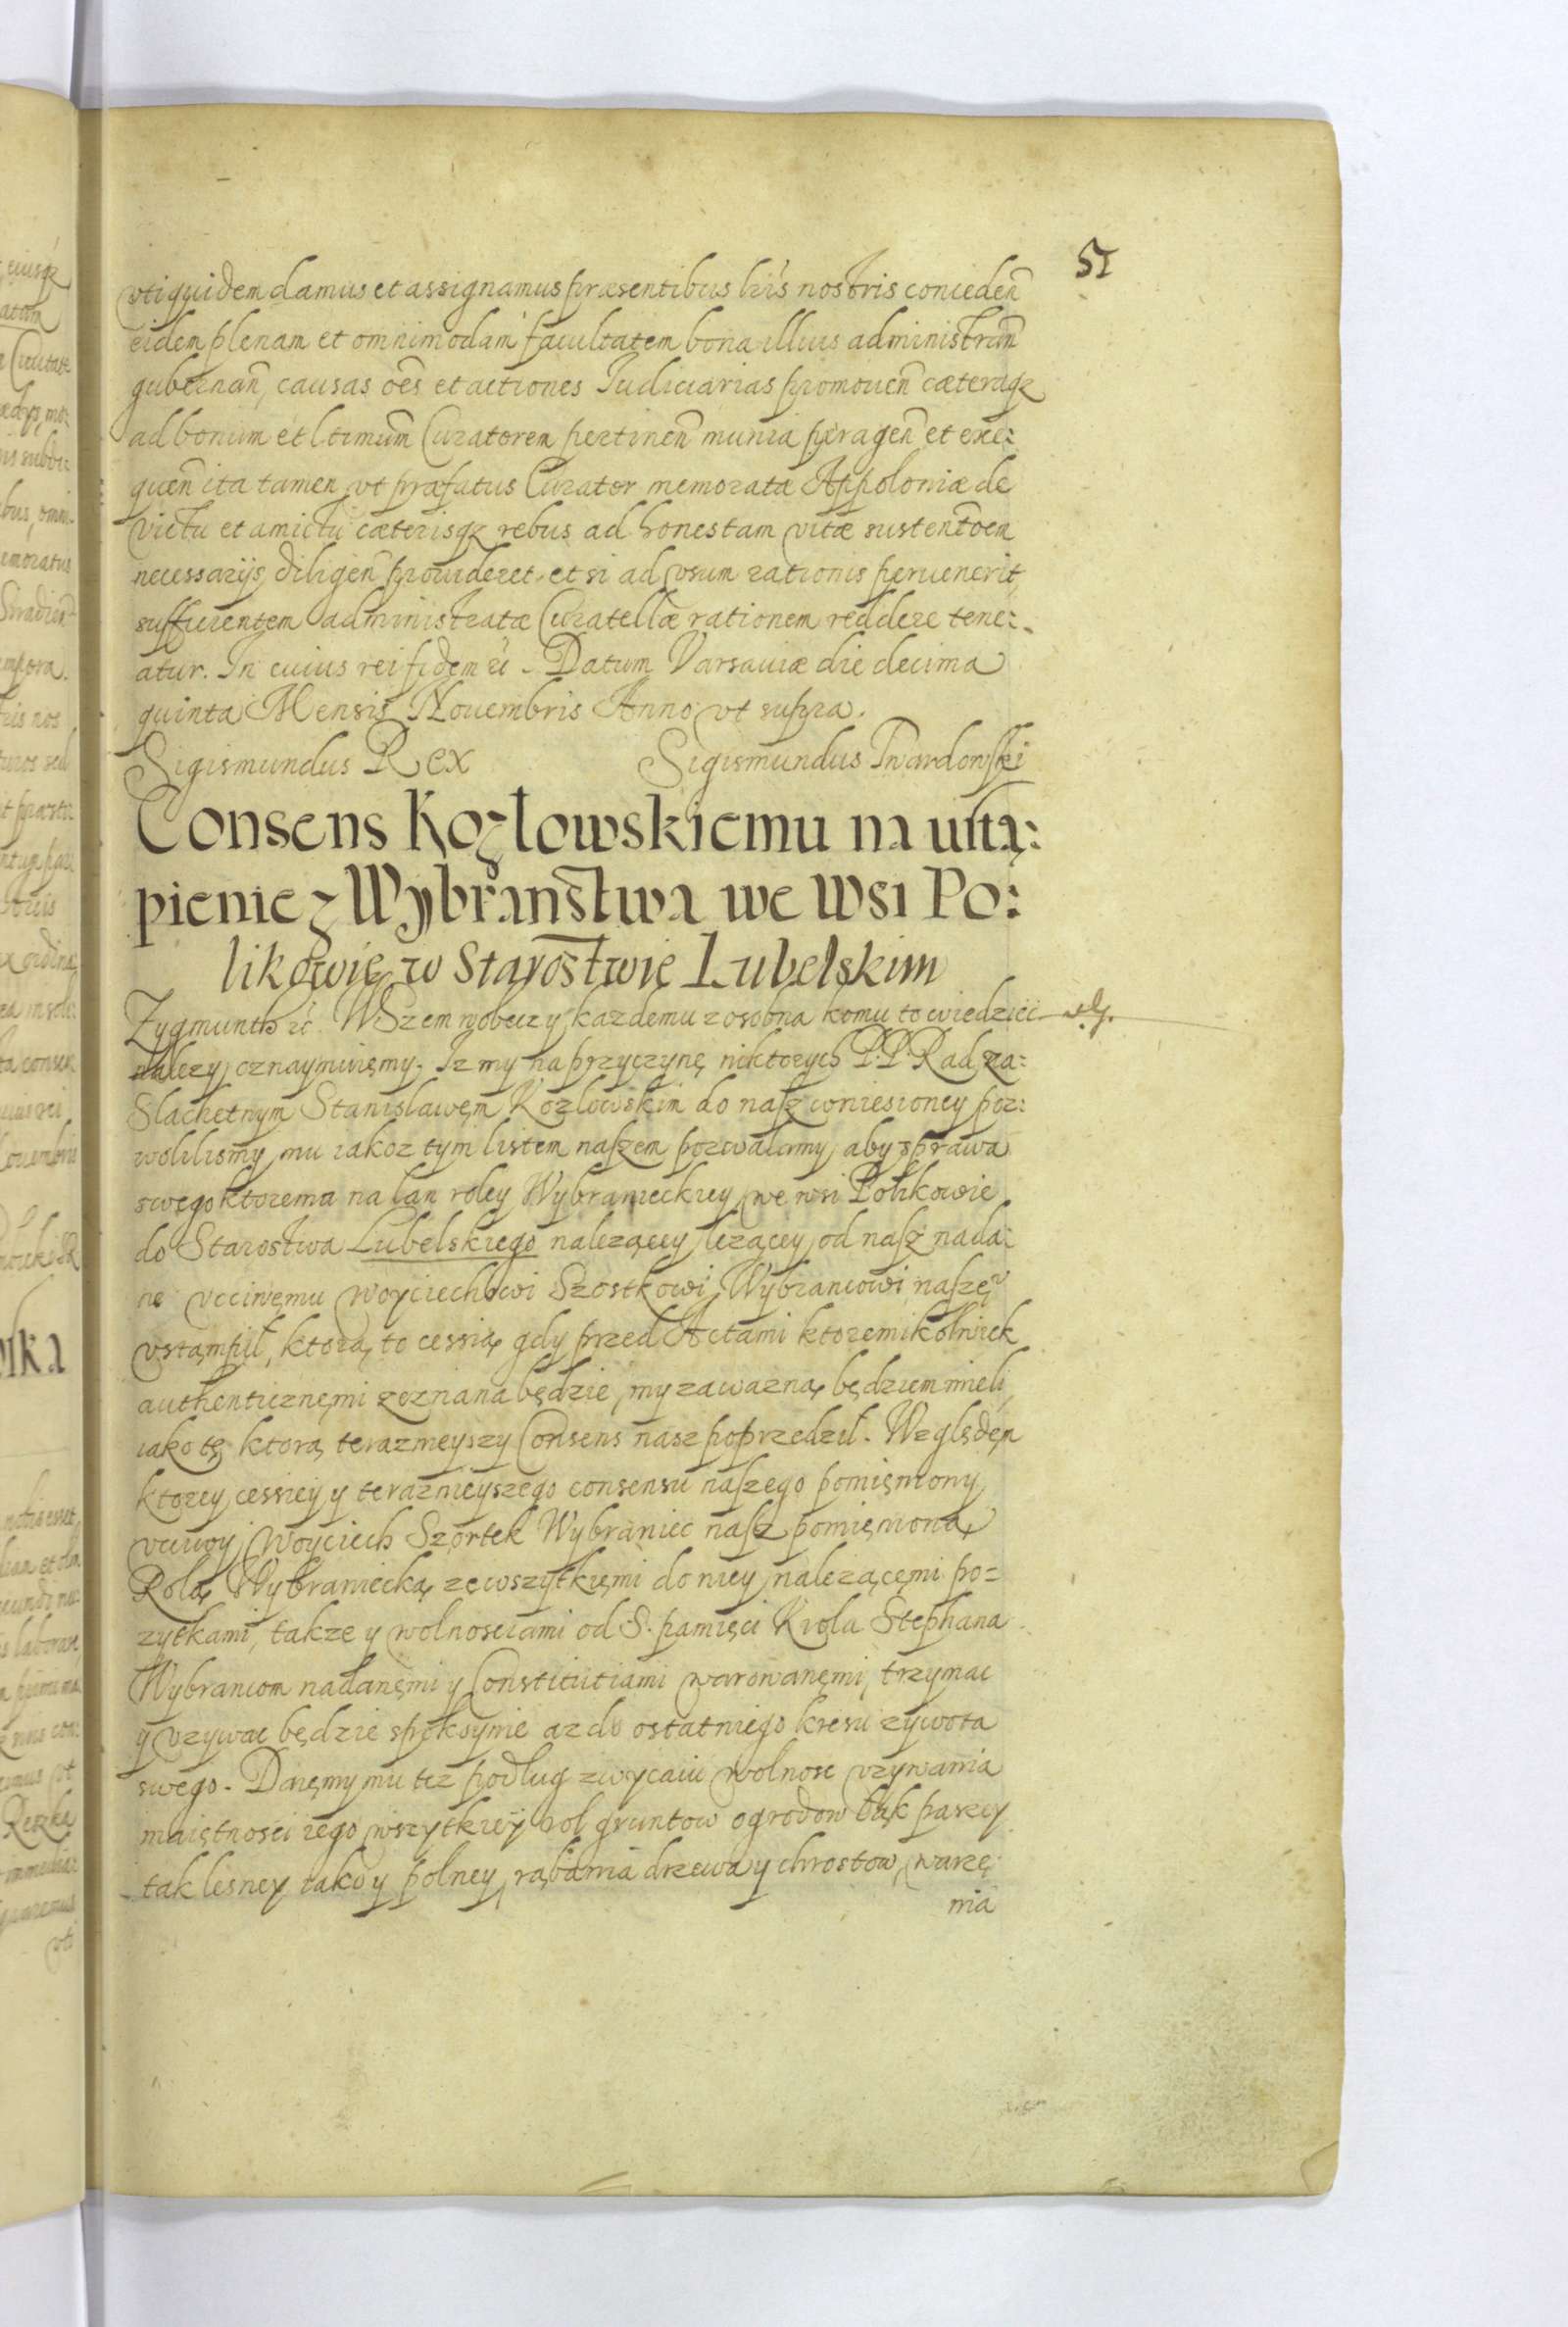 51
vti quidem damus et assignamus præsentibus lris nostris conceden̄
eidem plenam et omnimodam facultatem bona illius administran̄
gubernan̄, causas oēs et actiones Iudiciarias promouen̄ cæteraqz
ad bonum et ltimum̄ Curatorem pertinen̄ munia peragen̄ et exe:
quen̄ ita tamen vt præfatus Curator memorata Appoloniæ de
victu et amictu cæterisqz rebus ad honestam vitæ sustentōem
necessarijs diligen̄ prouideret, et si ad vsum rationis peruenerit
sufficientem administratæ Curatellæ rationem reddere tene:
atur. In cuius rei fidem ec̄. Datum Varsauiæ die decima
quinta Mensis Nouembris Anno vt supra.
Sigismundus Rex Sigismundus Twardowski
Consens Kozłowskiemu na ustą:
pienie z Wybraństwa we Wsi Po:
likowie w Starostwie Lubelskim
Zygmunth ec̄. Wszem wobeczy kazdemu z osobna komu to wiedziec
nalezy oznaymuięmy. Iz my na przyczynę niktorych P.P. Rad za:
Slachetnym Stanislawęm Kozlowskim do nasz wniesioney poz:
wolilismy mu iakoz tym listem naszem pozwalamy, aby z prawa
swego ktore ma na łan roley Wybranieckiey we wsi Polikowie
do Starostwa Lubelskiego nalezącey lezącey, od nasz nada:
ne vcciwemu Woyciechowi Szostkowi, Wybrancowi naszęᵘ
vstąmpił, ktorą to cessią gdy przed Actami ktoremikolwiek
authenticznęmi zeznana będzie, my za wazną będziem mieli
iako tę ktorą terazmeyszy Consens nasz poprzedził. Względęm
ktorey cessiey y teraznieyszego consensu naszego pomięniony
vcciwy Woyciech Szortek Wybraniec nasz pomięnioną
Rolą Wybraniecką ze wszytkięmi do niey nalezącęmi po:
zytkami, takze y wolnosciami od S. pamięci Krola Stephana
Wybrancom nadanęmi y Constitutiami warowanęmi, trzymac
y vzywac będzie spokoynie az do ostatniego kresu zywota
swego. Daięmy mu tez podług zwycaiu wolnosc vzywania
maiętnosci iego wszytkiey rol gruntow ogrodow łąk paszey
tak lesney iako y polney, rąbania drzewa y chrostow, warzę
nia